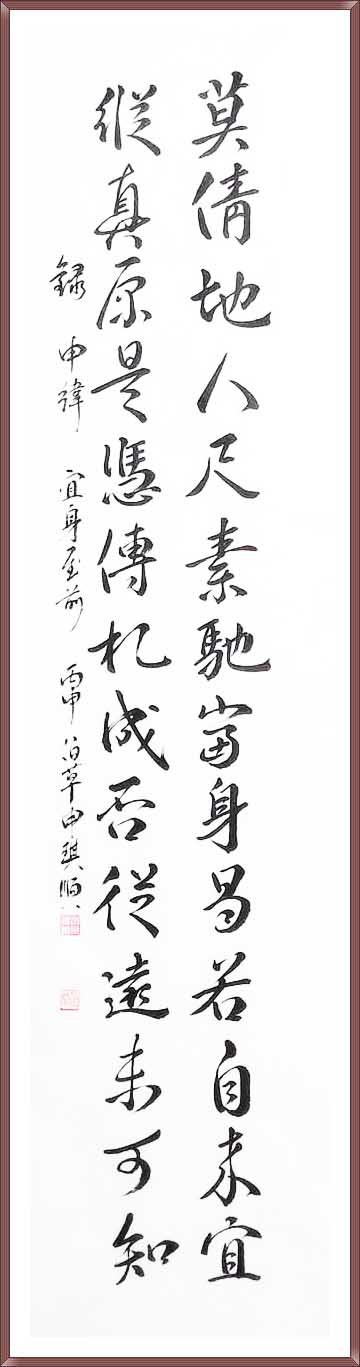 莫倩地人尺素馳當身曷若自來宜
縱真原是憑傳札成否從遠未可知
錄 申緯 宜身至前 丙申 草申琪順